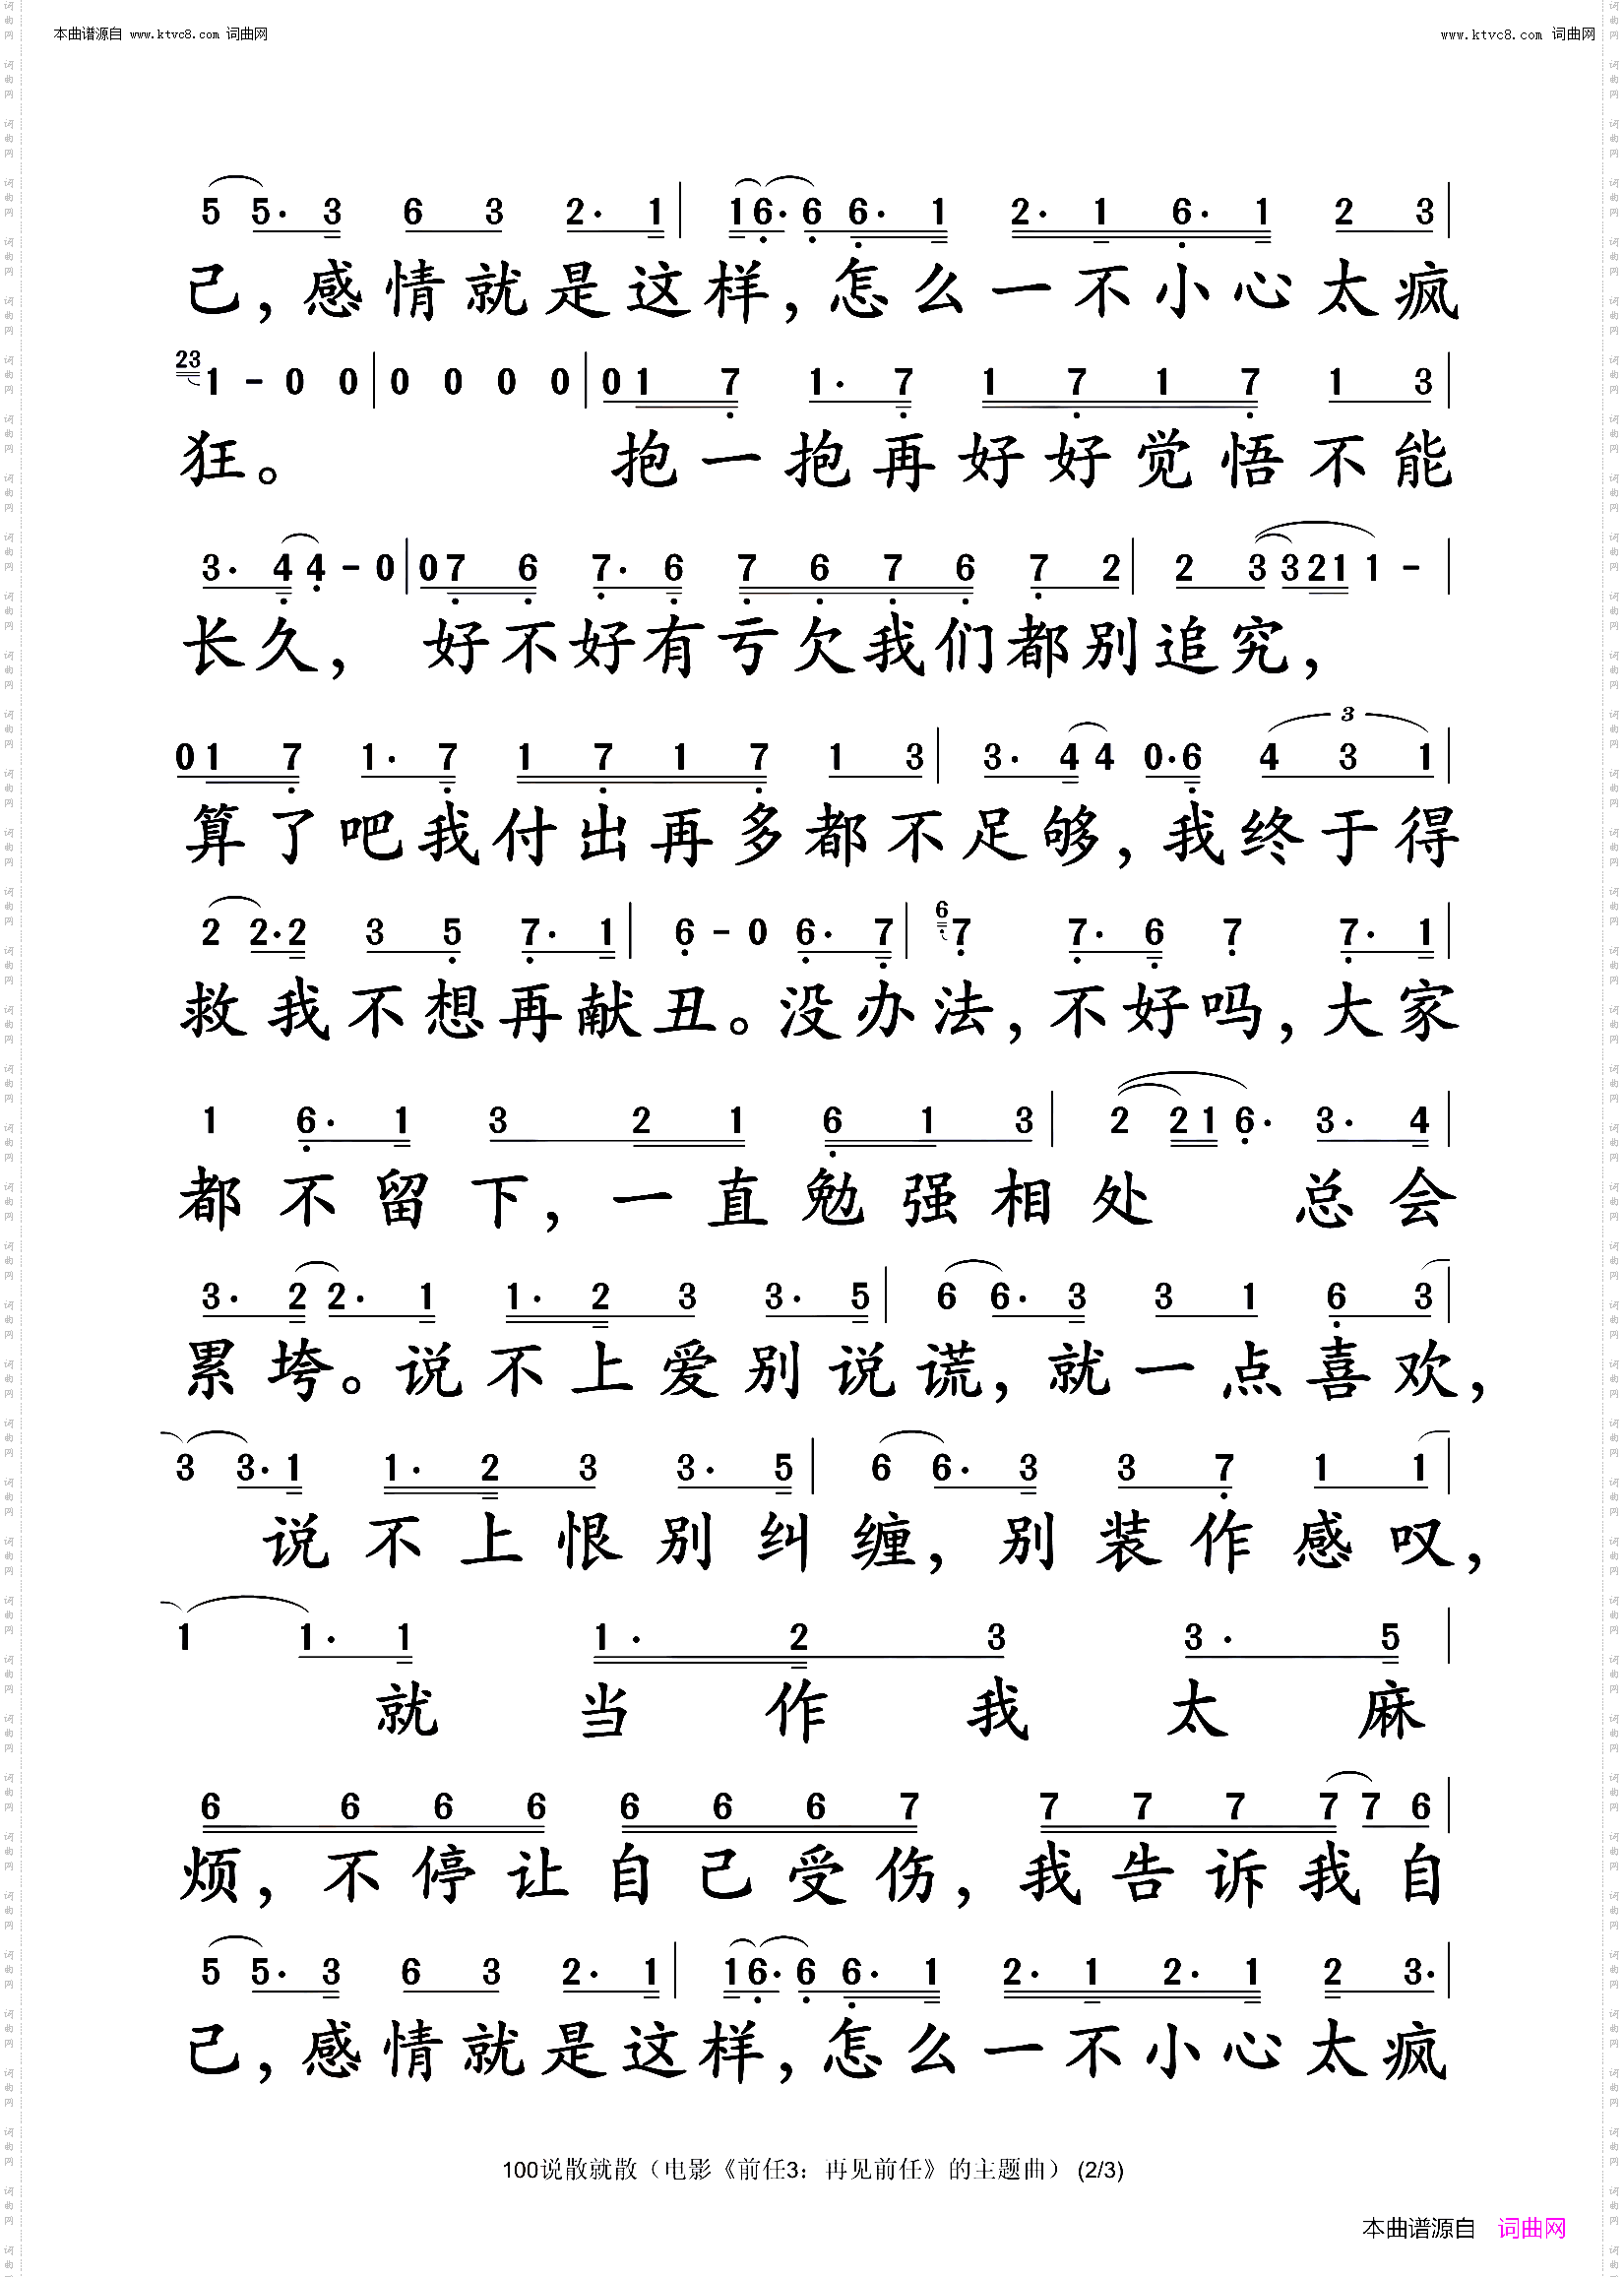 本曲谱源自 www.ktvc8.com 词曲网
www.ktvc8.com 词曲网
5 5· 3 6 3 2· 1 | 1 6· 6 6· 1 2· 1 6· 1 2 3 |
己，感情就是这样，怎么一不小心太疯
23 1 - 0 0 | 0 0 0 0 | 0 1 7 1· 7 1 7 1 7 1 3 |
狂。 抱一抱再好好觉悟不能
3· 4 4 - 0 | 0 7 6 7· 6 7 6 7 6 7 2 | 2 3 3 2 1 1 - |
长久， 好不好有亏欠我们都别追究，
3
0 1 7 1· 7 1 7 1 7 1 3 | 3· 4 4 0· 6 4 3 1 |
算了吧我付出再多都不足够，我终于得
2 2· 2 3 5 7· 1 | 6 - 0 6· 7 | 6 7 7· 6 7 7· 1 |
救我不想再献丑。没办法，不好吗，大家
1 6· 1 3 2 1 6 1 3 | 2 2 1 6· 3· 4 |
都不留下，一直勉强相处 总会
3· 2 2· 1 1· 2 3 3· 5 | 6 6· 3 3 1 6 3 |
累垮。说不上爱别说谎，就一点喜欢，
3 3· 1 1· 2 3 3· 5 | 6 6· 3 3 7 1 1 |
说不上恨别纠缠，别装作感叹，
1 1· 1 1· 2 3 3· 5 |
就当作我太麻
6 6 6 6 6 6 6 7 7 7 7 7 7 6 |
烦，不停让自己受伤，我告诉我自
5 5· 3 6 3 2· 1 | 1 6· 6 6· 1 2· 1 2· 1 2 3· |
己，感情就是这样，怎么一不小心太疯
100说散就散（电影《前任3：再见前任》的主题曲） (2/3)
本曲谱源自 词曲网